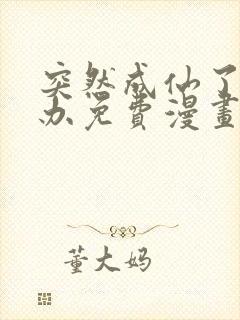 突然成仙了
办免费漫畫
董大妈